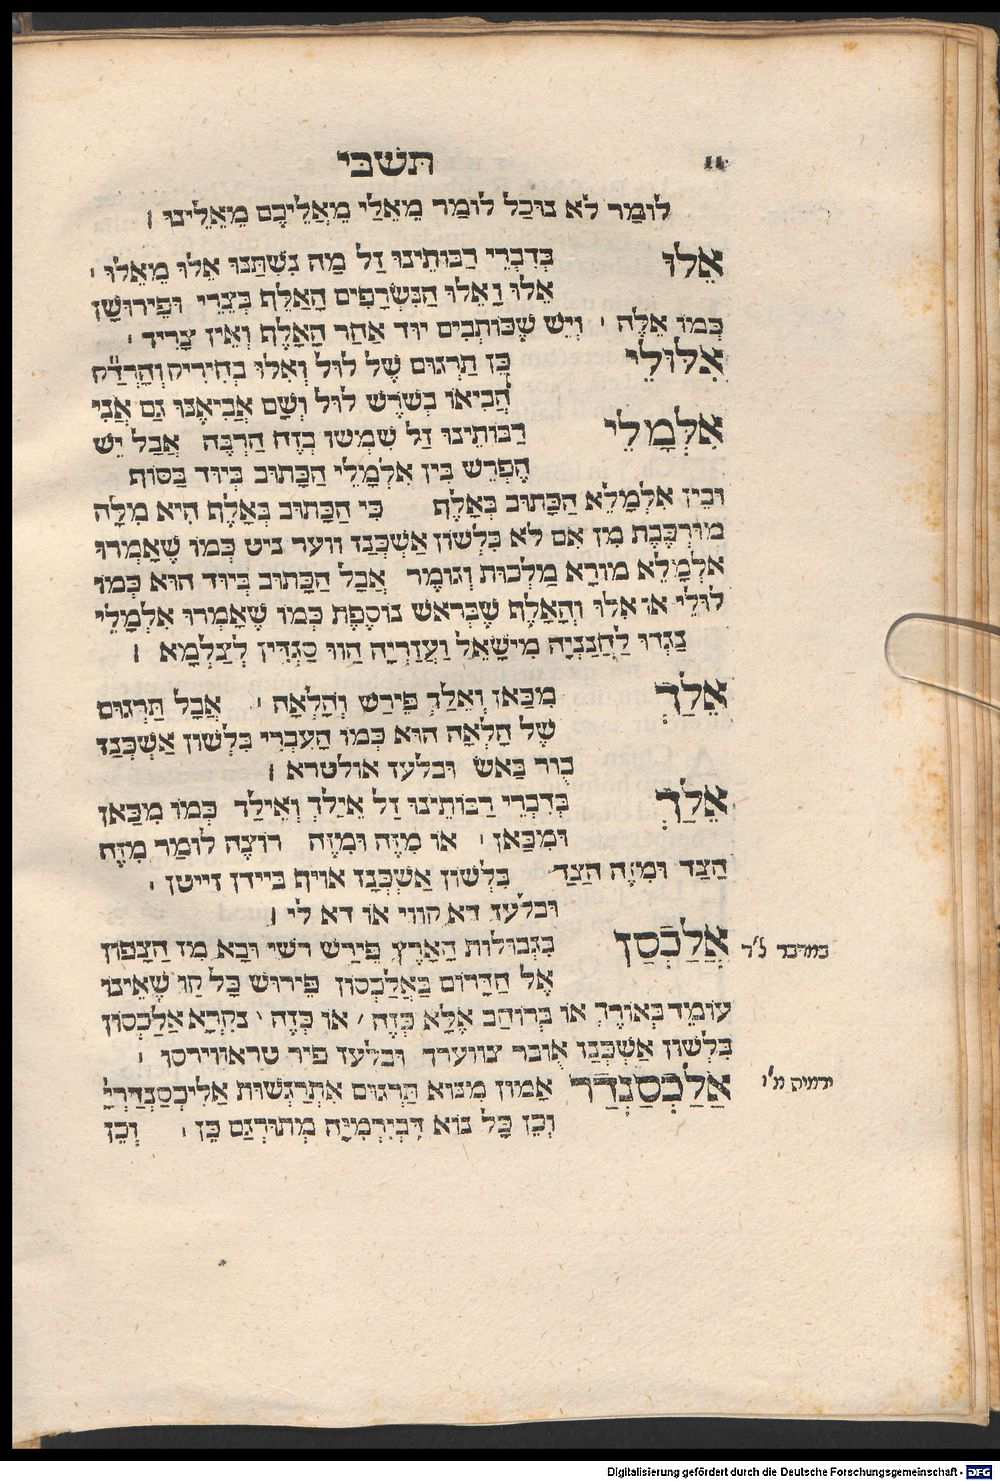 11 תשבי
לומַר לֹא נוּכַל לומַר מֵאֵלַי מֵאֲלֵיכֶם מֵאֵלֵינוּ ׀
אֵלוּ בְּדִבְרֵי רַבּוּתֵינוּ זַל מַה נִשְׁתַּנּוּ אֵלוּ מֵאֵלוּ ׳
אֵלוּ וְאֵלוּ הַנִּשְׂרָפִים הָאָלֶף בְּצֵרֵי וּפֵירוּשָׁן
כְּמוֹ אֵלֶּה ׳ וְיֵשׁ שֶׁכּוֹתְבִים יוּד אַחַר הָאָלֶף וְאֵין צָרִיךְ ׳
אִלּוּלֵי כֵּן תַרְגּוּם שֶׁל לוּל וְאִלּוּ בְחִירִיק וְהָרְדַ״ק
הֲבִיאוֹ בְשֹׁרֶשׁ לוּל וְשָׁם אֲבִיאֶנּוּ גַם אֲנִי
אִלְּמָלֵי רַבּוֹתֵינוּ זַל שִׁמְשׁוּ בְזֶה הַרְבֵּה אֲבָל יֵשׁ
הֶפְרֵשׁ בֵּין אִלְמָלֵי הַכָּתוּב בְּיוּד בַּסּוֹף
וּבֵין אִלְמָלֵא הַכָּתוּב בְּאָלֶף כִּי הַכָּתוּב בְּאָלֶף הִיא מִלָּה
מוּרְכֶּבֶת מִן אִם לֹא בִּלְשׁוֹן אַשְׁכְּנַז ווער ניט כְּמוֹ שֶׁאָמְרוּ
אִלְמָלֵא מוֹרָא מַלְכוּת וְגוֹמֶר אֲבָל הַכָּתוּב בְּיוּד הוּא כְּמוֹ
לוּלֵי אוֹ אִלּוּ וְהָאָלֶף שֶׁבְּרֹאשׁ נוֹסֶפֶת כְּמוֹ שֶׁאָמְרוּ אִלְמָלֵי
נַגְדוּ לַחֲנַנְיָה מִישָׁאֵל וַעֲזַרְיָה הֲווּ סַגְדִּין לְצַלְמָא ׀
אֵלַךְ מִכָּאן וְאֵלַךְ פֵּירַשׁ וְהָלְאָה ׳ אֲבָל תַּרְגּוּם
שֶׁל הָלְאָה הוּא כְּמוֹ הָעִבְרִי בִּלְשׁוֹן אַשְׁכְּנַז
בור באש ובלעז אולטרא ׀
אֵלַךְ בְּדִבְרֵי רַבּוֹתֵינוּ זַל אֵילַךְ וְאֵילַךְ כְּמוֹ מִכָּאן
וּמִכָּאן ׳ אוֹ מִזֶּה וּמִזֶּה רוֹצֶה לוֹמַר מִזֶּה
הַצַּד וּמִזֶּה הַצַּד בִּלְשׁוֹן אַשְׁכְּנַז אויף ביידן זייטן ׳
ובלעז דא קווי או דא לי ׀
אֲלַכְסַן בִּגְבוּלוֹת הָאָרֶץ פֵּירַשׁ רשי וּבָא מִן הַצָּפוֹן במדבר ל״ד
אֶל הַדָּרוֹם בַּאֲלַכְסוֹן פֵּירוּשׁ כָּל קַו שֶׁאֵינוֹ
עוֹמֵד בְּאוֹרֶךְ אוֹ בְּרוֹחַב אֶלָּא כָּזֶה / אוֹ כָּזֶה \ נִקְרָא אֲלַכְסוֹן
בִּלְשׁוֹן אַשְׁכְּנַז אֻובר צווערך ובלעז פיר טראווירסו ׳
אֲלַכְּסַנְדַר אָמוֹן מִנּוֹא תַּרְגּוּם אִתְרַגְשׁוּת אֲלִיכְּסַנְדַּרְיָּא ירמיה מ״ו
וְכֵן כָּל נוֹא דְּבִירְמִיָּה מְתוּרְגַּם כֵּן ׳ וְכֵן
Digitalisierung gefördert durch die Deutsche Forschungsgemeinschaft - DFG